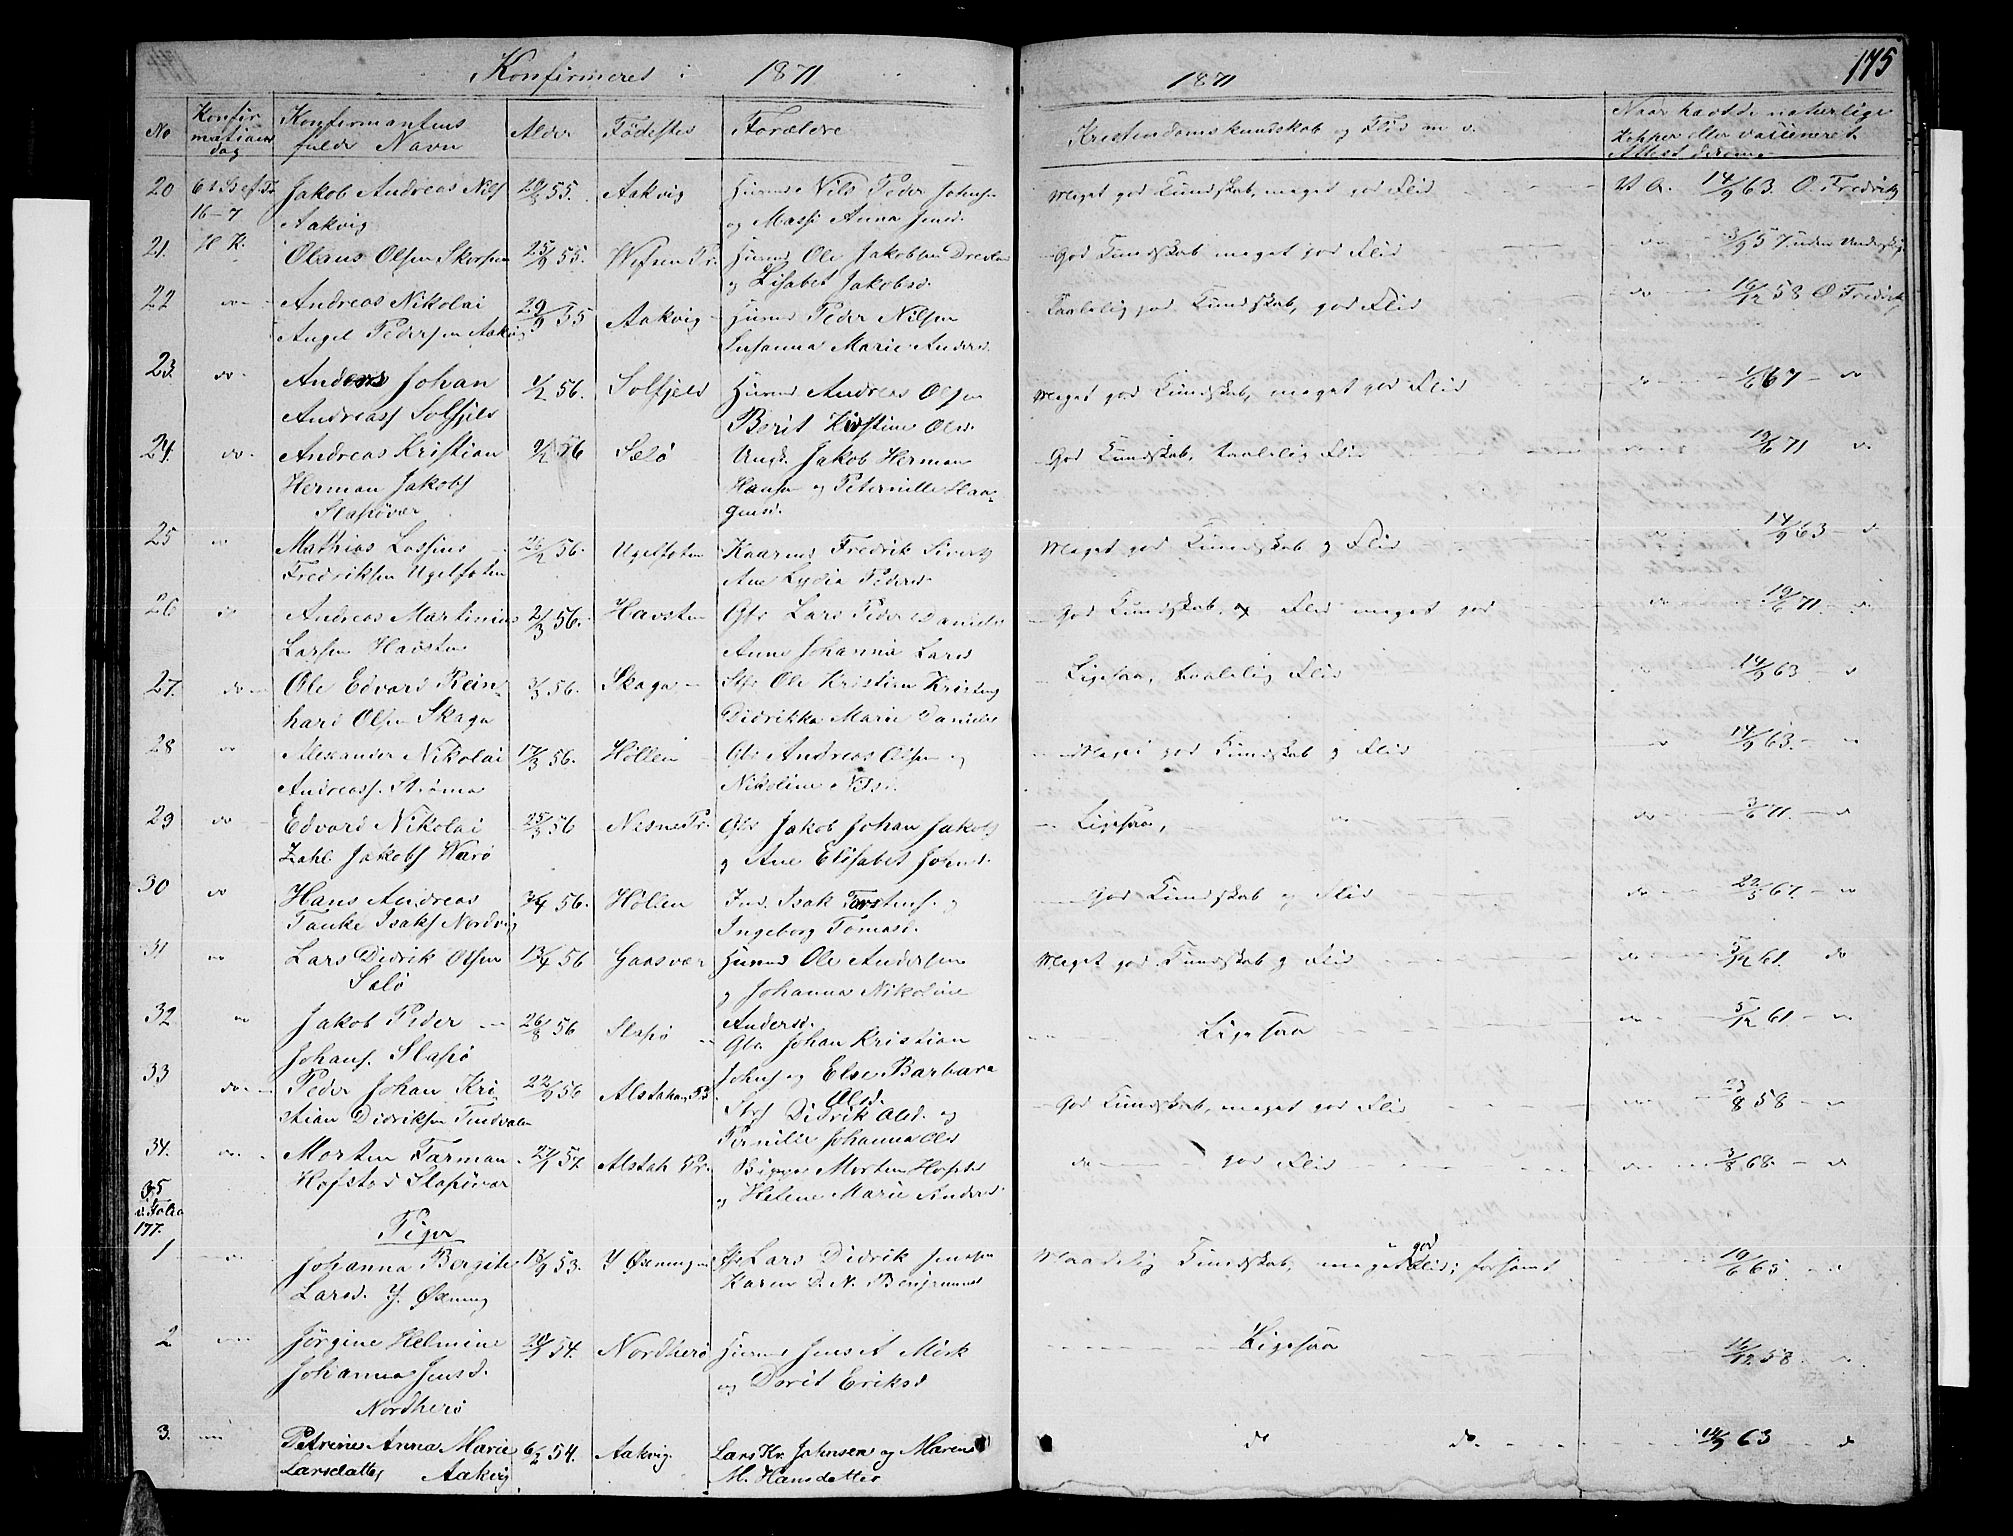 Konfirmeret i 1871
1871
175
No
Konfir
mations
dag
Konfirmantens
fulde Navn
Alder
Fødested
Forældre
Kristendomskundskab og Flid m. v.
Naar havt de naturlige
Kopper eller vaccineret
Attest derom
20
16-7
Jakob Andreas Nils
Aakvig
55.
Aakvig
Husmd Nils Peder Johns
og Massi Anna Jensd.
Meget god Kundskab, meget god Flid
14/9 63. O. Fredrik
21.
H. K.
Olaus Olsen
25/9 55.
Husmd Ole Jakobsen
og Lisabet Jakobsd.
God Kundskab meget god Flid
do
22
do
Andreas Nikolai
Angel Pedersen Aakvig
29/9 55
Aakvig
Husmd Peder Nilsen
Susanna Marie Andersd.
Taalelig god Kundskab, god Flid
do
16/12 58 O Fredrik
23.
do
Anders Johan
Andreass Solfjeld
1/2 56.
Solfjeld
Husmd Andreas Olsen
Berit Kirstine Olsd.
Meget god Kundskab, meget god Flid
do
67 do
24.
do
Andreas Kristian
Herman Jakobs
Slapøvær
56
Sælø
Ungk. Jakob Herman
Hansen og Peternille Haa-
gensd.
God Kundskab, taalelig Flid
19/6 71 do
25
do
Mathias Lossius
Fredriksen Ugelfoten
56.
Ugelfoten
Kaarmd Fredrik Siverts
Ane Lydia Pedersd.
Meget god Kundskab og Flid
14/9 63 do
26
do
Andreas Martinius
Larsen Havsten
21/3 56.
Havsten
Gbr Lars Peder Daniels
Anne Johanna Larsd
God Kundskab, Flid meget god
do
19/6 71 do
27.
do
Ole Edvard Rein-
hard Olsen Skaga
56.
Skaga
Ole Kristian Kristens
Didrikka Marie Danielsd
Ligesaa, taalelig Flid
do
14/9 63 do
28
do
Alexander Nikolai
Andreass. Strøma
17/3 56.
Høllen
Gbr Andreas Olsen og
Nikoline Nilsd.
Meget god Kundskab og Flid
do
14/9 63. do
29
do
Edvard Nikolai
Zahl Jakobs Værø
25/3 56
Nesne Pr.
Gbr Jakob Johan Jakobs
og Ane Elisabet Johnsd.
Ligesaa,
do
3/6 71. do
30
do
Hans Andreas
Tanke Isaks Nordvig
56.
Høllen
Ind. Isak Torstens. og
Ingeborg Tomasd.
God Kundskab og Flid
do
22/5 67. do
31
do
Lars Didrik Olsen
Sælø
13/4 56
Gaasvær
Husmd Ole Andersen
og Johanna Nikoline
Andersd.
Meget god Kundskab og Flid
do
5/12 61. do
32
do
Jakob Peder
Johans. Slapø
26/8 56
Slapø
Gbr Johan Kristian
Johns og Else Barbara
Olsd.
Ligesaa
do
5/12 61. do
33
do
Peder Johan Kri-
stian Didriksen Tendvalen
22/9 56
Alstahaug Pr.
Didrik Olsd. og
Pernille Johanna Olsd
God Kundskab, meget god Flid
do
23/8 58 do
34.
do
Morten Farman
Hofstad Slapøvær
27/1 57.
Alstah Pr.
Bygger Morten Hofstad
og Helene Marie Andersd
do god Flid
do
3/8 68. do
35
i Folio
177.
Piger
1
Johanna Bergite
Larsd. Y. Øxning
13/9 53.
Y Øxningen
Lars Didrik Jensen
Karen D. N. Benjaminsd
Maadelig Kundskab, meget god Flid; forsømt
19/6 65 do
2
Jørgine Helmine
Johanna Jensd.
Nordherø
54.
Nordherø
Husmd Jens A Mørk
og Dorit Eriksd
Ligesaa
16/12 58 do
3.
Petrine Anna Marie
Larsdatter Aakvig
6/2 54.
Aakvig.
Lars Kr. Johnsen og Maren
M. Hansdatter
do do
14/9 63 do